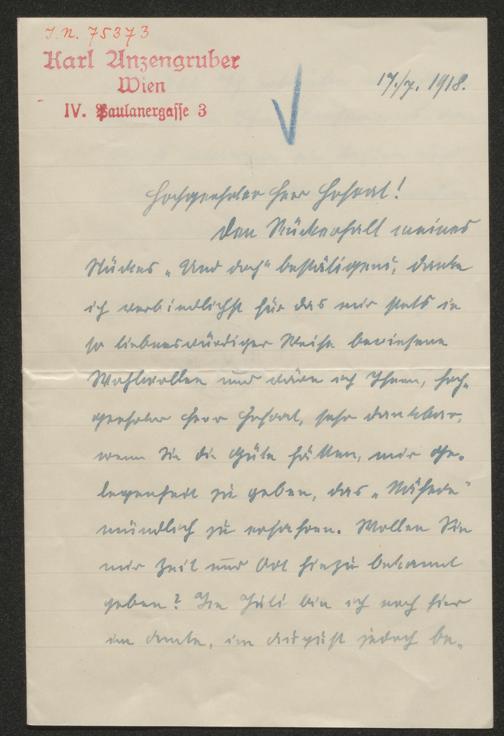 I.N. 75373
Karl Anzengruber
Wien
IV. Paulanergasse 3
17./7. 1918.
Hochgeehrter Herr Hofrat!
Den Rückerhalt meines
Stückes „Und doch" bestätigend, danke
ich verbindlichst für das mir stets in
so liebenswürdiger Weise bewiesene
Wohlwollen und wäre ich Ihnen, hoch-
geehrter Herr Hofrat, sehr dankbar,
wenn Sie die Güte hätten, mir Ge-
legenheit zu geben, das „Nähere"
mündlich zu erfahren. Wollen Sie
mir Zeit und Ort hiezu bekannt
geben? Im Juli bin ich noch hier
im Amte, im August jedoch be-